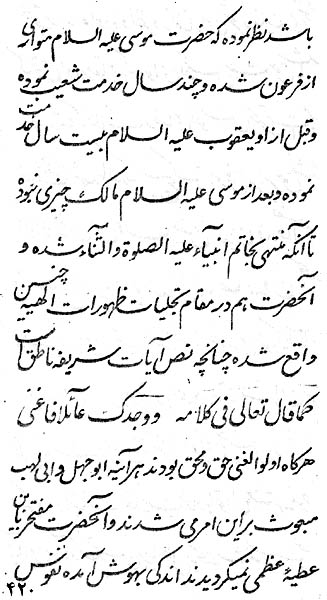 باشد نظر نموده که حضرت موسی علیه السلام متواری
از فرعون شده و چند سال خدمت شعیب نموده
و قبل از او یعقوب علیه السلام بیست سال خدمت
نموده و بعد از موسی علیه السلام مالک چیزی نبوده
تا آنکه منتهی بخاتم انبیآء علیه الصلوة و الثنآء شده و
آنحضرت هم در مقام تجلیات ظهورات الهیه چنین
واقع شده چنانچه نص آیات شریفه ناطق است
کما قال تعالی فی کلامه و وجدک عائلا فاغنی
هرگاه اولو الغنی حق و محق بودند هر آینه ابوجهل و ابی لهب
مبعوث بر این امر می شدند و آنحضرت مفتخر باین
عطیهٔ عظمی نمیگردیدند اندکی بهوش آمده نفوس
۴۲۰